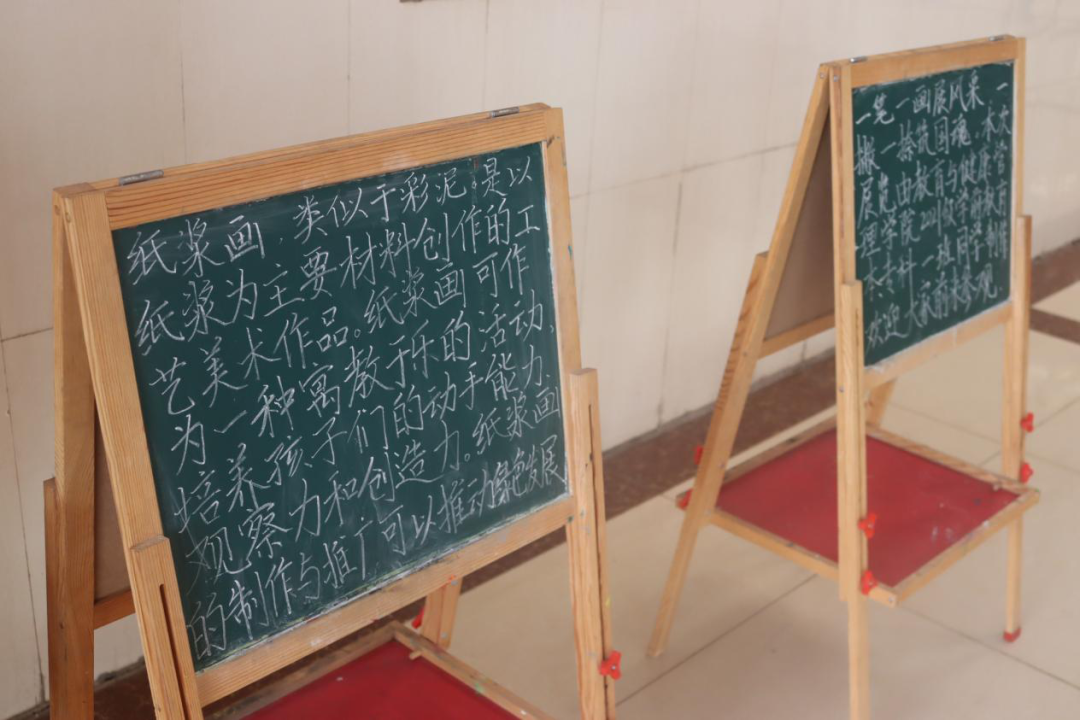 纸浆画,类似于彩泥,是以
纸浆为主要材料创作的工
艺美术作品。纸浆画可作
为一种寓教于乐的活动,
培养孩子们的动手能力,
观察力和创造力。纸浆画
的制作与推广可以推动绘画发展
一笔一画展风采,一
撇一捺筑国魂,本次
展览由教育与健康管
理学院2021级学前教育
大专科一班同学制作
欢迎大家前来参观.